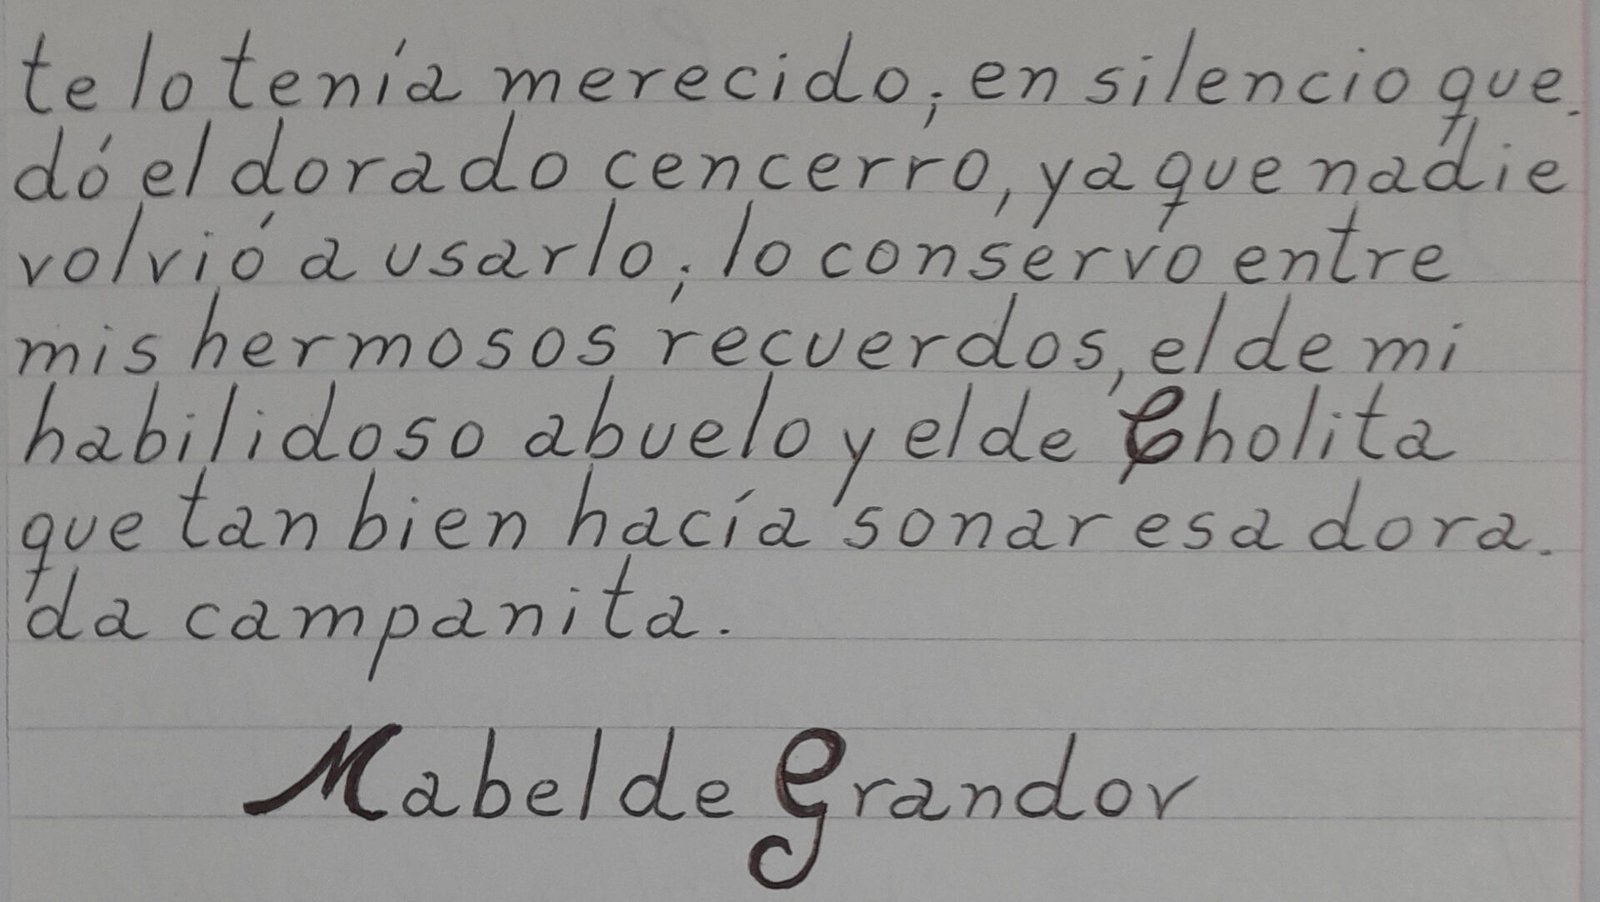 te lo tenía merecido; en silencio que-
dó el dorado cencerro, ya que nadie
volvió a usarlo; lo conservo entre
mis hermosos recuerdos, el de mi
habilidoso abuelo y el de Cholita
que tan bien hacía sonar esa dora-
da campanita.
Mabel de Grandov